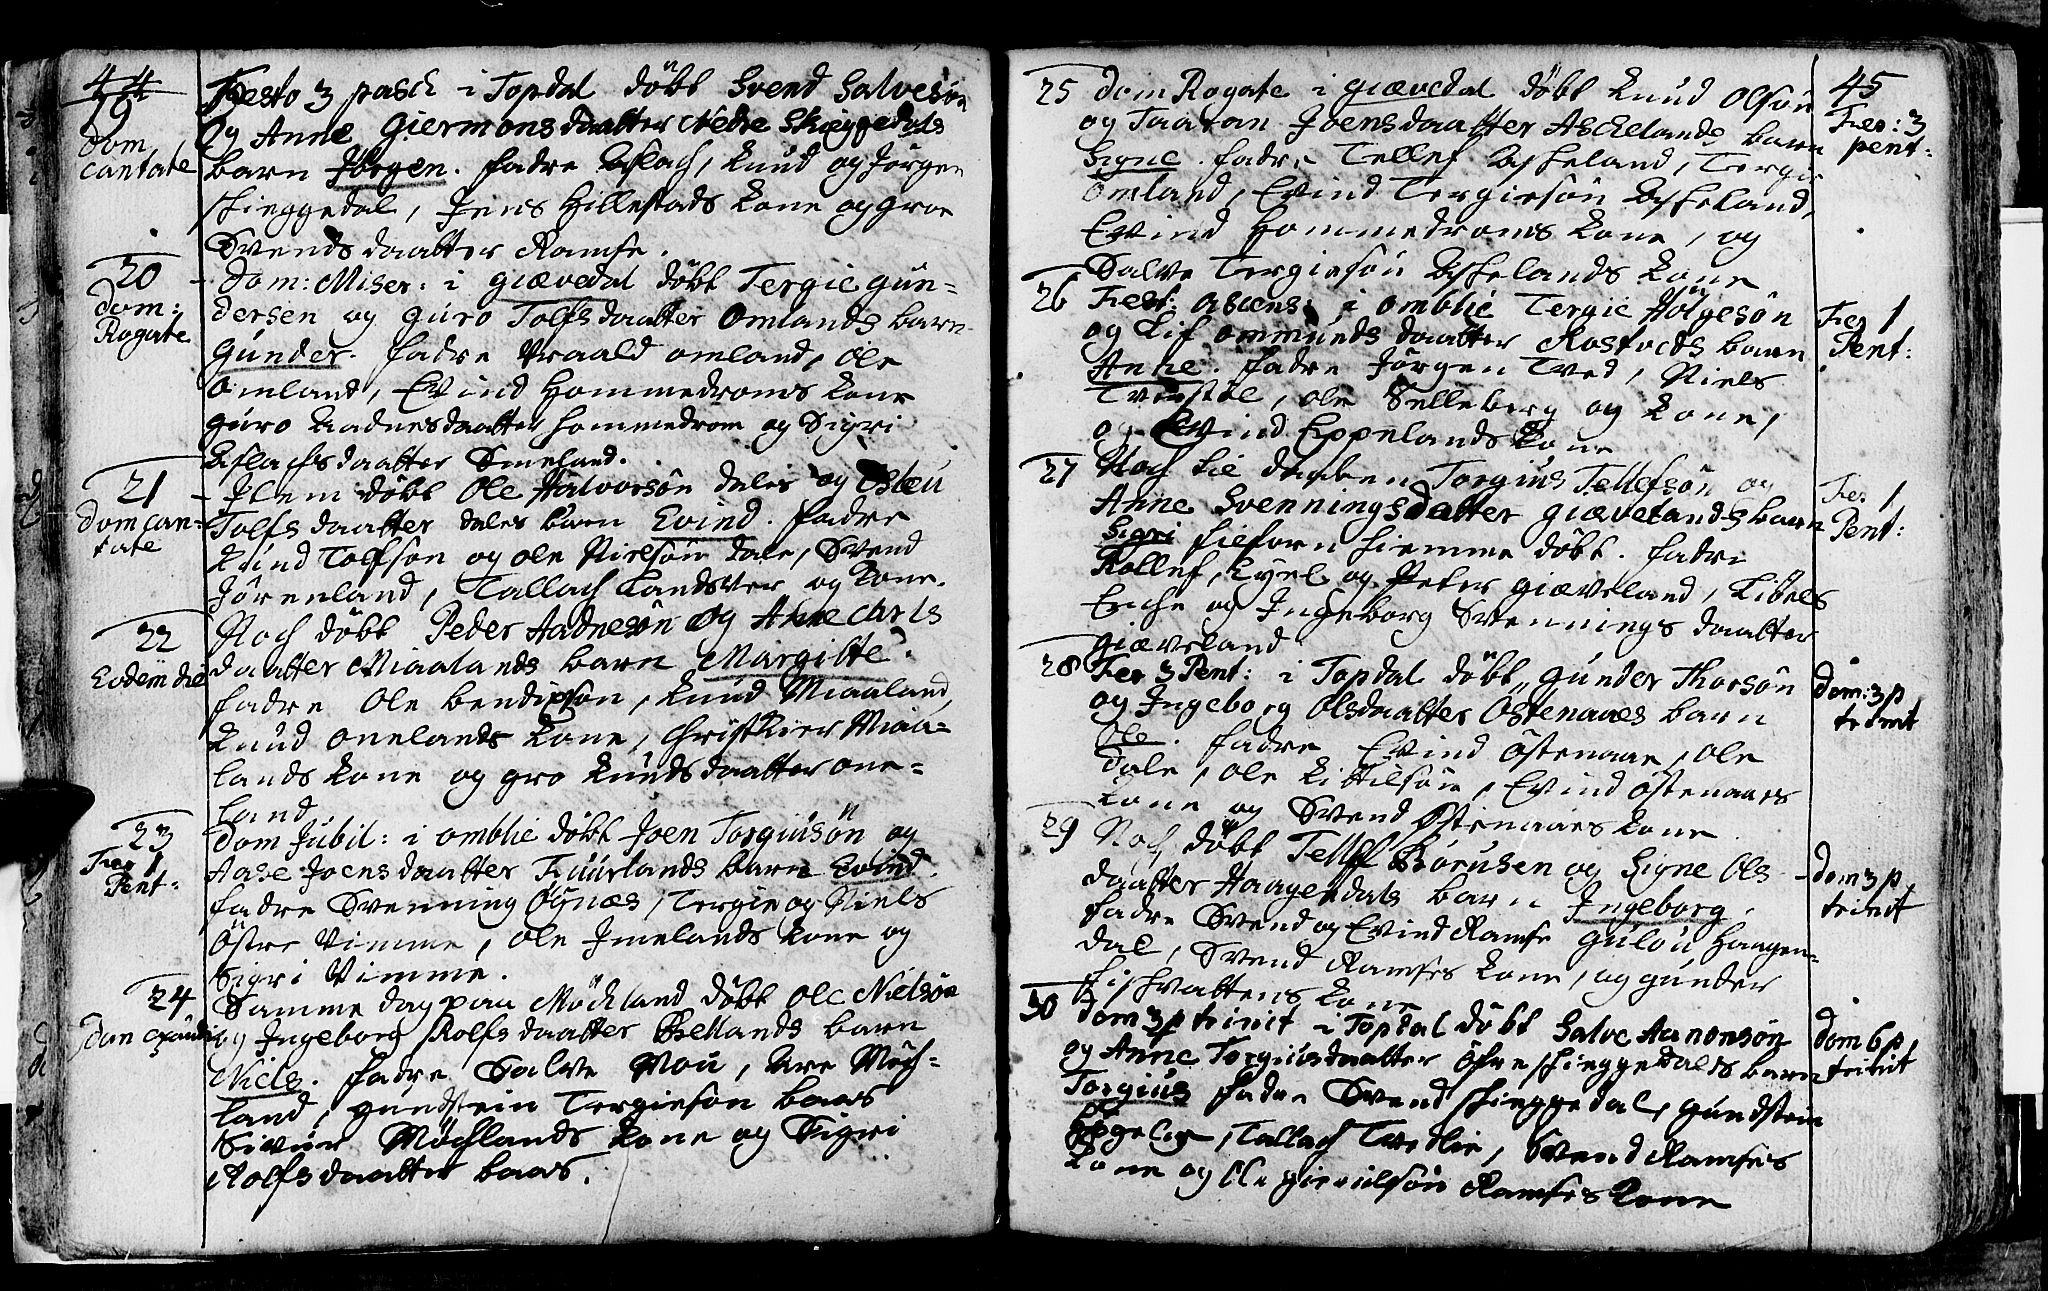 44
19
Dom
cantate
Festo 3 pasch i Topdal döbt Svend Salvesön
og Anne Giermonsdaatter Nedre Skieggedals
barn Jörgen. fadre Aslach, Knud og Jörgen
skieggedal, Jens Hillestads kone og Groe
Svends daatter Ramse.
20
Dom:
Rogate
Dom: Miser: i giævedal döbt Tergie Gun-
dersen og guro Tolfsdaatter Omlands barn
Gunder. fadre Vraald omland, ole
omland, Evind Hommedroms kone
guro Aadnesdaatter hommedrom og Sigri
Aslachsdaatter Smeland.
21
Dom can-
tate
Item döbt Ole Halvorsön dales og Osleu
Tolfs daatter dales barn Evind. fadre
Knud Tolfsön og ole Nielsön dale, Svend
Jörenland, Tallach Landsver og kone.
22
Eodem die
Noch döbt Peder Aadnesön og Anne Carls
daatter Miaalands barn Margitte.
fadre Ole bendixsön, Knud Miaaland
Knud onelands kone, Christkier Miaa-
lands kone og gro Knudsdaatter one-
land
23
Fer 1
Pent:
Dom Jubil: i omblie döbt Joen Torgiusön og
Aase Joensdaatter Fuurlands barn Evind.
fadre Svenning Ögnæs, Tergie og Niels
östre Vimme, ole Imelands kone og
Sigri Vimme.
24
Dom exaudi
Samme dag paa Möchland döbt ole Nielsön
og Ingeborg Rolfs daatter Betlands barn
Niels. fadre Salve Mou, Are Möch-
land, gundstein Tergiesön baas
Sivier Möchlands kone og Sigri
Rolfsdaatter baas.
45
25
Dom Rogate i giævedal döbt Knud olsön
og Taaran Joensdaatter Aschelands barn
Signe. fadre Tellef Askeland, Tergie
omland, Evind Tergiesön Askeland,
Evind Hommedroms kone, og
Salve Tergiesön Askelands kone
Fer: 3
pent:
26
Fest: ascens: i omblie Tergie Hölgesön
og Lif ommunds daatter Rostveds barn
Anne. fadre Jörgen Tved, Niels
ole Selleberg og kone,
og Evind Eppelands kone
Fer 1
Pent:
27
Noch til daaben Torgius Tellefsön og
Anne Svenningsdatter giævelands barn
Sigri tilforn hiemme döbt. fadre
Rollef, Kyel og Peter giæveland,
og Ingeborg Svennings daatter
giæveland
Fer 1
Pent:
28
Fer 3 Pent: i Topdal döbt Gunder Thorsön
og Ingeborg Olsdaatter Östenaaes barn
Ole. fadre Evind Östenaae, ole
Dale, ole Kittilsön, Evind östenaaes
kone og Svend Östenaaes kone
Dom: 3 p
trinit
29
Noch döbt Tellef Börusen og Signe Ols-
daatter Haagendals barn Ingeborg.
fadre Svend og Evind Ramse Haagen-
dal, Svend Ramses kone, og gunder
fischvattens kone
Dom 3 p
trinit
30
Dom 3 p trinit i Topdal döbt Salve Aanonsön
og Anne Torgiusdaatter öfre skieggedals barn
Torgius fadre Svend skieggedal, gundstein
Tallach Tvedlie, Svend Ramses
kone og Ole gierulfsön Ramses kone
Dom 6 p
trinit